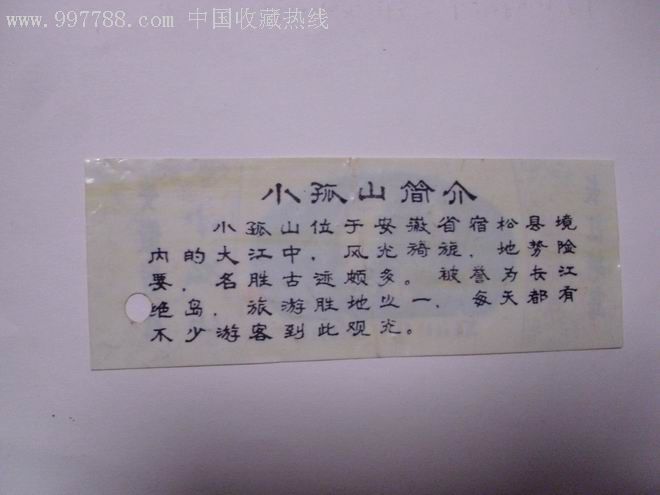 www.997788.com 中国收藏热线
小孤山简介
小孤山位于安徽省宿松县境
内的大江中，风光旖旎，地势险
要，名胜古迹颇多。被誉为长江
绝岛，旅游胜地之一，每天都有
不少游客到此观光。